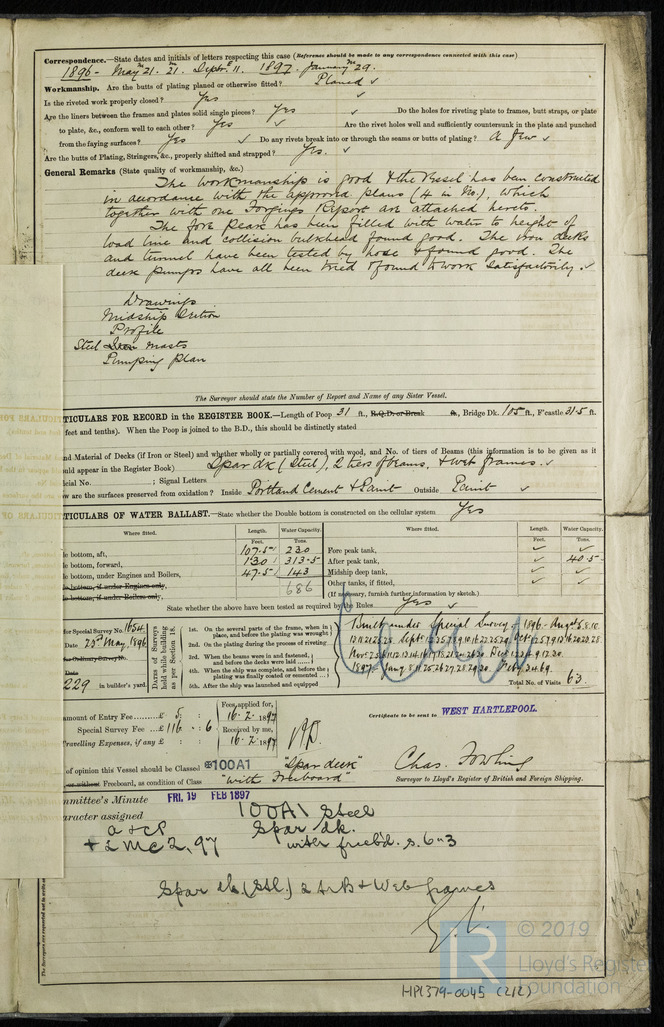 Correspondence.—State dates and initials of letters respecting this case (Reference should be made to any correspondence connected with this case)
1896- May 21. 21. Septr. 11. 1897. January 29.
Workmanship. Are the butts of plating planed or otherwise fitted? Planed ✓
Is the riveted work properly closed? Yes ✓
Are the liners between the frames and plates solid single pieces? Yes ✓ Do the holes for riveting plate to frames, butt straps, or plate
to plate, &c., conform well to each other? Yes ✓ Are the rivet holes well and sufficiently countersunk in the plate and punched
from the faying surfaces? Yes ✓ Do any rivets break into or through the seams or butts of plating? A few ✓
Are the butts of Plating, Stringers, &c., properly shifted and strapped? Yes. ✓
General Remarks (State quality of workmanship, &c.)
The workmanship is good & the Vessel has been constructed
in accordance with the approved plans (4 in No.), which
together with one Forgings Report are attached hereto.
The fore peak has been filled with water to height of
load line and collision bulkhead found good. The iron decks
and tunnel have been tested by hose & found good. The
deck pumps have all been tried & found to work satisfactorily. ✓
Drawings
Midship Section
Profile
Steel Iron masts
Pumping plan
The Surveyor should state the Number of Report and Name of any Sister Vessel.
TICULARS FOR RECORD in the REGISTER BOOK.—Length of Poop 31 ft., R.Q.D. or Break ft., Bridge Dk. 105 ft., F'castle 31.5 ft.
feet and tenths). When the Poop is joined to the B.D., this should be distinctly stated
nd Material of Decks (if Iron or Steel) and whether wholly or partially covered with wood, and No. of tiers of Beams (this information is to be given as it
ould appear in the Register Book) Spar dk (Steel), 2 tiers of beams, & web frames. ✓
icial No. ; Signal Letters
ow are the surfaces preserved from oxidation? Inside Portland Cement & Paint Outside Paint ✓
TICULARS OF WATER BALLAST.—State whether the Double bottom is constructed on the cellular system Yes
Where fitted. Length. Water Capacity. Where fitted. Length. Water Capacity.
Feet. Tons. Feet. Tons.
le bottom, aft, 107.5 230 Fore peak tank, ✓ ✓
le bottom, forward, 130 313.5 After peak tank, ✓ 40.5
le bottom, under Engines and Boilers, 47.5 143 Midship deep tank, ✓ ✓
le bottom, if under Engines only, 686 Other tanks, if fitted, ✓ ✓
le bottom, if under Boilers only, (If necessary, furnish further information by sketch.)
State whether the above have been tested as required by the Rules Yes ✓
for Special Survey No. 1654
Date 23rd May, 1896
for Ordinary Survey No.
Date
229 in builder's yard.
Dates of Surveys held while building as per Section 18.
1st. On the several parts of the frame, when in place, and before the plating was wrought
2nd. On the plating during the process of riveting
3rd. When the beams were in and fastened, and before the decks were laid
4th. When the ship was complete, and before the plating was finally coated or cemented
5th. After the ship was launched and equipped
Built under Special Survey. 1896.
Total No. of Visits 63
amount of Entry Fee £ 5 : : Fees applied for, 16.2.1897
Special Survey Fee £ 116 : : 6 Received by me, 16.2.1897
Travelling Expenses, if any £ : :
Certificate to be sent to WEST HARTLEPOOL.
of opinion this Vessel should be Classed 100A1 "Spar deck"
or without Freeboard, as condition of Class "with Freeboard"
Chas. Fowling
Surveyor to Lloyd's Register of British and Foreign Shipping.
mmittee's Minute FRI. 19 FEB 1897
aracter assigned 100A1 Steel
Spar dk.
a & CP
+ LMC 2,97 with freebd. s. 6"3
Spar dk (Stl.) 2 trs B & Web frames
The Surveyors are requested not to write
© 2019
Lloyd's Register
Foundation
LR
HPL379-0045 (2/2)